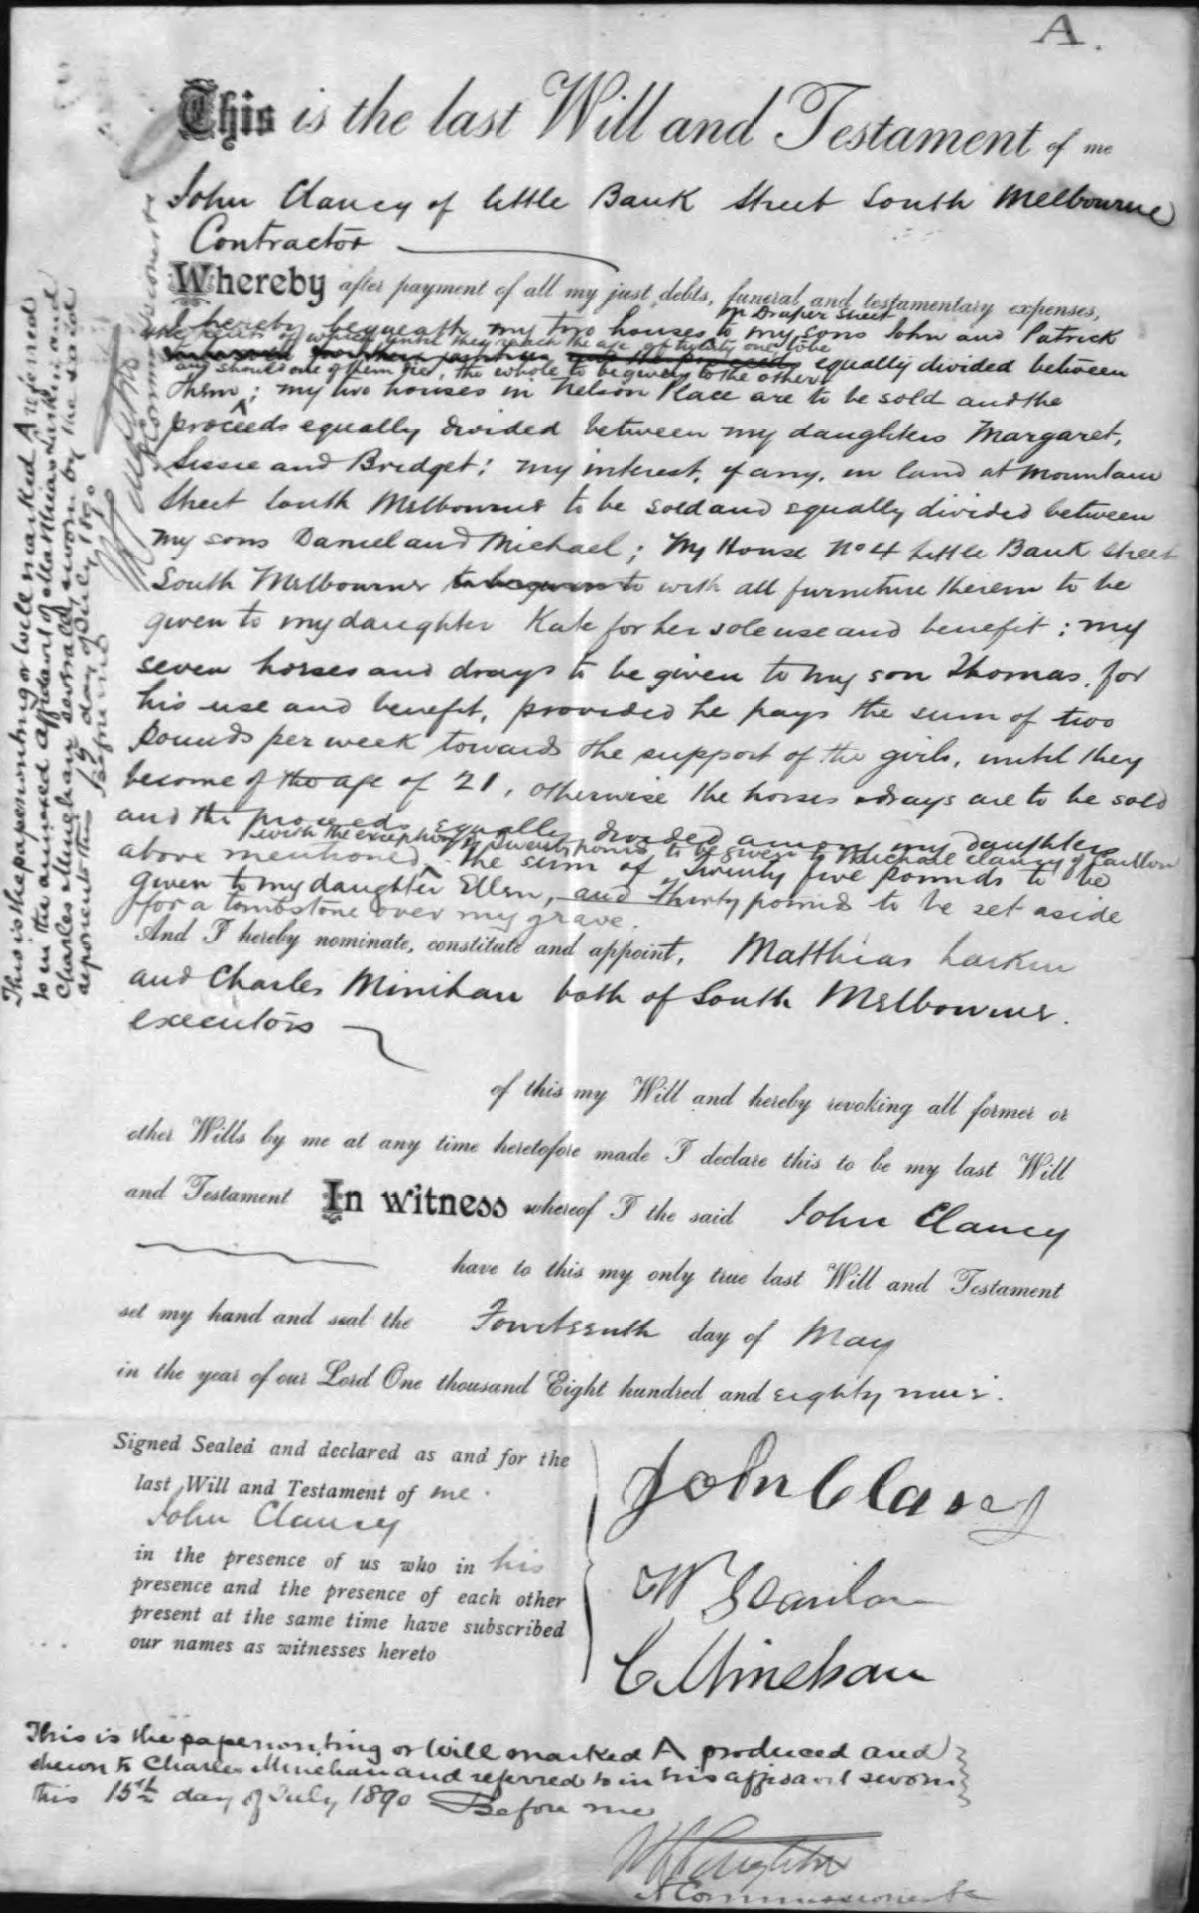 A.
This is the last Will and Testament of me
John Clancy of little Bank Street South Melbourne
Contractor
Whereby after payment of all my just debts, funeral and testamentary expenses,
in Draper Street
hereby bequeath my two houses to my sons John and Patrick
the rents of which until they reach the age of twenty one to be
equally divided between
any should one of them die, the whole to be given to the other
them; my two houses in Nelson Place are to be sold and the
proceeds equally divided between my daughters Margaret,
Lissie and Bridget; my interest, if any, in land at Mountain
Street South Melbourne to be sold and equally divided between
my sons Daniel and Michael; My House No 4 Little Bank Street
South Melbourne to be given to with all furniture therein to be
given to my daughter Kate for her sole use and benefit; my
seven horses and drays to be given to my son Thomas, for
his use and benefit, provided he pays the sum of two
pounds per week towards the support of the girls, until they
become of the age of 21, otherwise the horses & drays are to be sold
and the proceeds equally divided among my daughters
with the exception of twenty pounds to be given to Michael Clancy of Carlton
above mentioned, the sum of Twenty five pounds to be
given to my daughter Ellen, and Thirty pounds to be set aside
for a tombstone over my grave.
And I hereby nominate, constitute and appoint, Matthias Larkin
and Charles Minihan both of South Melbourne.
executors
of this my Will and hereby revoking all former or
other Wills by me at any time heretofore made I declare this to be my last Will
and Testament In witness whereof I the said John Clancy
have to this my only true last Will and Testament
set my hand and seal the Fourteenth day of May
in the year of our Lord One thousand Eight hundred and eighty nine.
Signed Sealed and declared as and for the
last Will and Testament of me.
John Clancy
in the presence of us who in his
presence and the presence of each other
present at the same time have subscribed
our names as witnesses hereto
John Clancy
W Scanlon
C Minehan
This is the paper writing or Will marked A produced and
shewn to Charles Minehan and referred to in his affidavit sworn
this 15th day of July 1890 Before me
A Commissioner &c
This is the paper writing or will marked A referred
to in the annexed affidavit of Matthias Larkin and
Charles Minehan severally sworn by the said
deponents this day of July 1890
Before me
A Commissioner &c